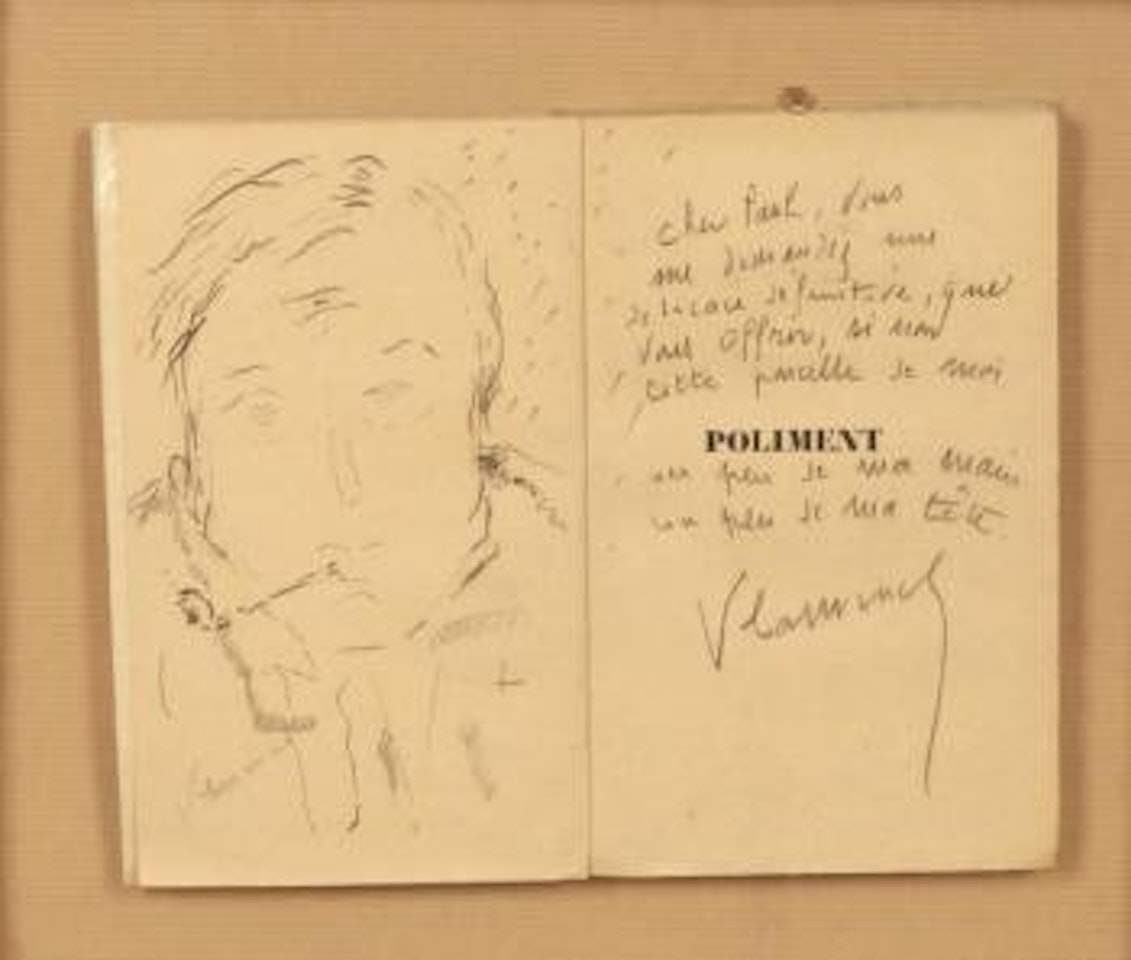 cher Paul, Vous
me demandez une
dédicace définitive, que
vous offrir, si non
cette parcelle de moi
POLIMENT
un peu de ma main
un peu de ma tête
Vlaminck